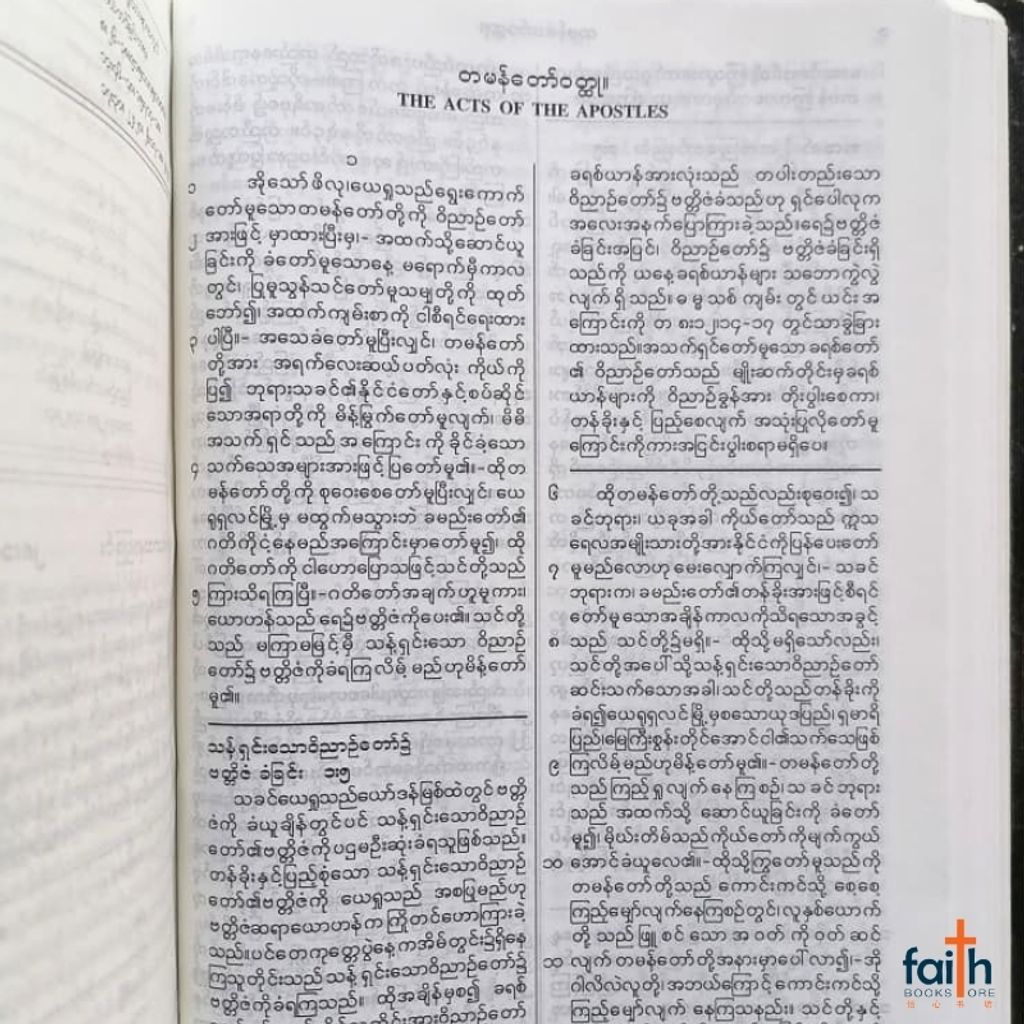 တမန်တော်ဝတ္ထု။
THE ACTS OF THE APOSTLES
၁
၁ အိုသော်ဖိလု၊ ယေရှုသည်ရွေးကောက်
တော်မူသောတမန်တော်တို့ကို ဝိညာဉ်တော်
၂ အားဖြင့် မှာထားပြီးမှ၊– အထက်သို့ဆောင်ယူ
ခြင်းကို ခံတော်မူသောနေ့ မရောက်မှီကာလ
တွင်၊ ပြုမူသွန်သင်တော်မူသမျှတို့ကို ထုတ်
ဘော်၍၊ အထက်ကျမ်းစာကို ငါစီရင်ရေးထား
၃ ပါပြီ။– အသေခံတော်မူပြီးလျှင်၊ တမန်တော်
တို့အား အရက်လေးဆယ်ပတ်လုံး ကိုယ်ကို
ပြ၍ ဘုရားသခင်၏နိုင်ငံတော်နှင့်စပ်ဆိုင်
သောအရာတို့ကို မိန့်မြွက်တော်မူလျက်၊ မိမိ
အသက်ရှင်သည် အကြောင်းကို ခိုင်ခံ့သော
၄ သက်သေအများအားဖြင့်ပြတော်မူ၏။–ထိုတ
မန်တော်တို့ကို စုဝေးစေတော်မူပြီးလျှင်၊ ယေ
ရုရှလင်မြို့မှ မထွက်မသွားဘဲ ခမည်းတော်၏
ဂတိကိုငံ့နေမည်အကြောင်းမှာတော်မူ၍၊ ထို
ဂတိတော်ကို ငါဟောပြောသဖြင့်သင်တို့သည်
၅ ကြားသိရကြပြီ။–ဂတိတော်အချက်ဟူမူကား၊
ယောဟန်သည် ရေ၌ဗတ္တိဇံကိုပေး၏။ သင်တို့
သည် မကြာမမြင့်မှီ သန့်ရှင်းသော ဝိညာဉ်
တော်၌ ဗတ္တိဇံကိုခံရကြလိမ့်မည်ဟုမိန့်တော်
မူ၏။
သန့်ရှင်းသောဝိညာဉ်တော်၌
ဗတ္တိဇံ ခံခြင်း ၁း၅
သခင်ယေရှုသည်ယော်ဒန်မြစ်ထဲတွင်ဗတ္တိ
ဇံကို ခံယူချိန်တွင်ပင် သန့်ရှင်းသောဝိညာဉ်
တော်၏ဗတ္တိဇံကိုပဌမဦးဆုံးခံရသူဖြစ်သည်။
တန်ခိုးနှင့်ပြည့်စုံသော သန့်ရှင်းသောဝိညာဉ်
တော်၏ဗတ္တိဇံကို ယေရှုသည် အစပြုမည်ဟု
ဗတ္တိဇံဆရာယောဟန်က ကြိုတင်ဟောကြားခဲ့
သည်။ပင်တေကုတ္တေပွဲနေ့ကအိမ်တွင်း၌ရှိနေ
ကြသူတိုင်းသည်သန့်ရှင်းသောဝိညာဉ်တော်၌
ဗတ္တိဇံကိုခံရကြသည်။ ထိုအချိန်မှစ၍ ခရစ်
ခရစ်ယာန်အားလုံးသည် တပါးတည်းသော
ဝိညာဉ်တော်၌ ဗတ္တိဇံခံသည်ဟု ရှင်ပေါလုက
အလေးအနက်ပြောကြားခဲ့သည်။ရေ၌ဗတ္တိဇံ
ခံခြင်းအပြင်၊ ဝိညာဉ်တော်၌ ဗတ္တိဇံခံခြင်းရှိ
သည်ကို ယနေ့ခရစ်ယာန်များ သဘောကွဲလွဲ
လျက်ရှိသည်။ ဓမ္မသစ်ကျမ်းတွင် ယင်းအ
ကြောင်းကို တ ၈း၁၂၊၁၄-၁၇ တွင်သာခွဲခြား
ထားသည်။အသက်ရှင်တော်မူသော ခရစ်တော်
၏ ဝိညာဉ်တော်သည် မျိုးဆက်တိုင်းမှခရစ်
ယာန်များကို ဝိညာဉ်ခွန်အား တိုးပွါးစေကာ၊
တန်ခိုးနှင့် ပြည့်စေလျက် အသုံးပြုလိုတော်မူ
ကြောင်းကိုကားအငြင်းပွါးစရာမရှိပေ။
၆ ထိုတမန်တော်တို့သည်လည်းစုဝေး၍၊ သ
ခင်ဘုရား၊ ယခုအခါ ကိုယ်တော်သည် ဣသ
ရေလအမျိုးသားတို့အားနိုင်ငံကိုပြန်ပေးတော်
၇ မူမည်လောဟု မေးလျှောက်ကြလျှင်၊– သခင်
ဘုရားက၊ ခမည်းတော်၏တန်ခိုးအားဖြင့်စီရင်
တော်မူသောအချိန်ကာလကိုသိရသောအခွင့်
၈ သည် သင်တို့၌မရှိ။– ထိုသို့မရှိသော်လည်း၊
သင်တို့အပေါ်သို့သန့်ရှင်းသောဝိညာဉ်တော်
ဆင်းသက်သောအခါ၊သင်တို့သည်တန်ခိုးကို
ခံရ၍ယေရုရှလင်မြို့မှစသောယုဒပြည်၊ရှမာရိ
ပြည်၊မြေကြီးစွန်းတိုင်အောင်ငါ၏သက်သေဖြစ်
၉ ကြလိမ့်မည်ဟုမိန့်တော်မူ၏။–တမန်တော်တို့
သည်ကြည့်ရှုလျက်နေကြစဉ်၊ သခင်ဘုရား
သည် အထက်သို့ ဆောင်ယူခြင်းကို ခံတော်
မူ၍၊ မိုဃ်းတိမ်သည်ကိုယ်တော်ကိုမျက်ကွယ်
၁၀ အောင်ခံယူလေ၏။–ထိုသို့ကြွတော်မူသည်ကို
တမန်တော်တို့သည် ကောင်းကင်သို့ စေ့စေ့
ကြည့်မျှော်လျက်နေကြစဉ်တွင်၊လူနှစ်ယောက်
တို့သည်ဖြူစင်သောအဝတ်ကိုဝတ်ဆင်
၁၁ လျက် တမန်တော်တို့အနားမှာပေါ်လာ၍၊–အို
ဂါလိလဲလူတို့၊အဘယ်ကြောင့်ကောင်းကင်သို့
ကြည့်မျှော်လျက် နေကြသနည်း။ သင်တို့နှင့်
faith
BOOKSTORE
信心书坊